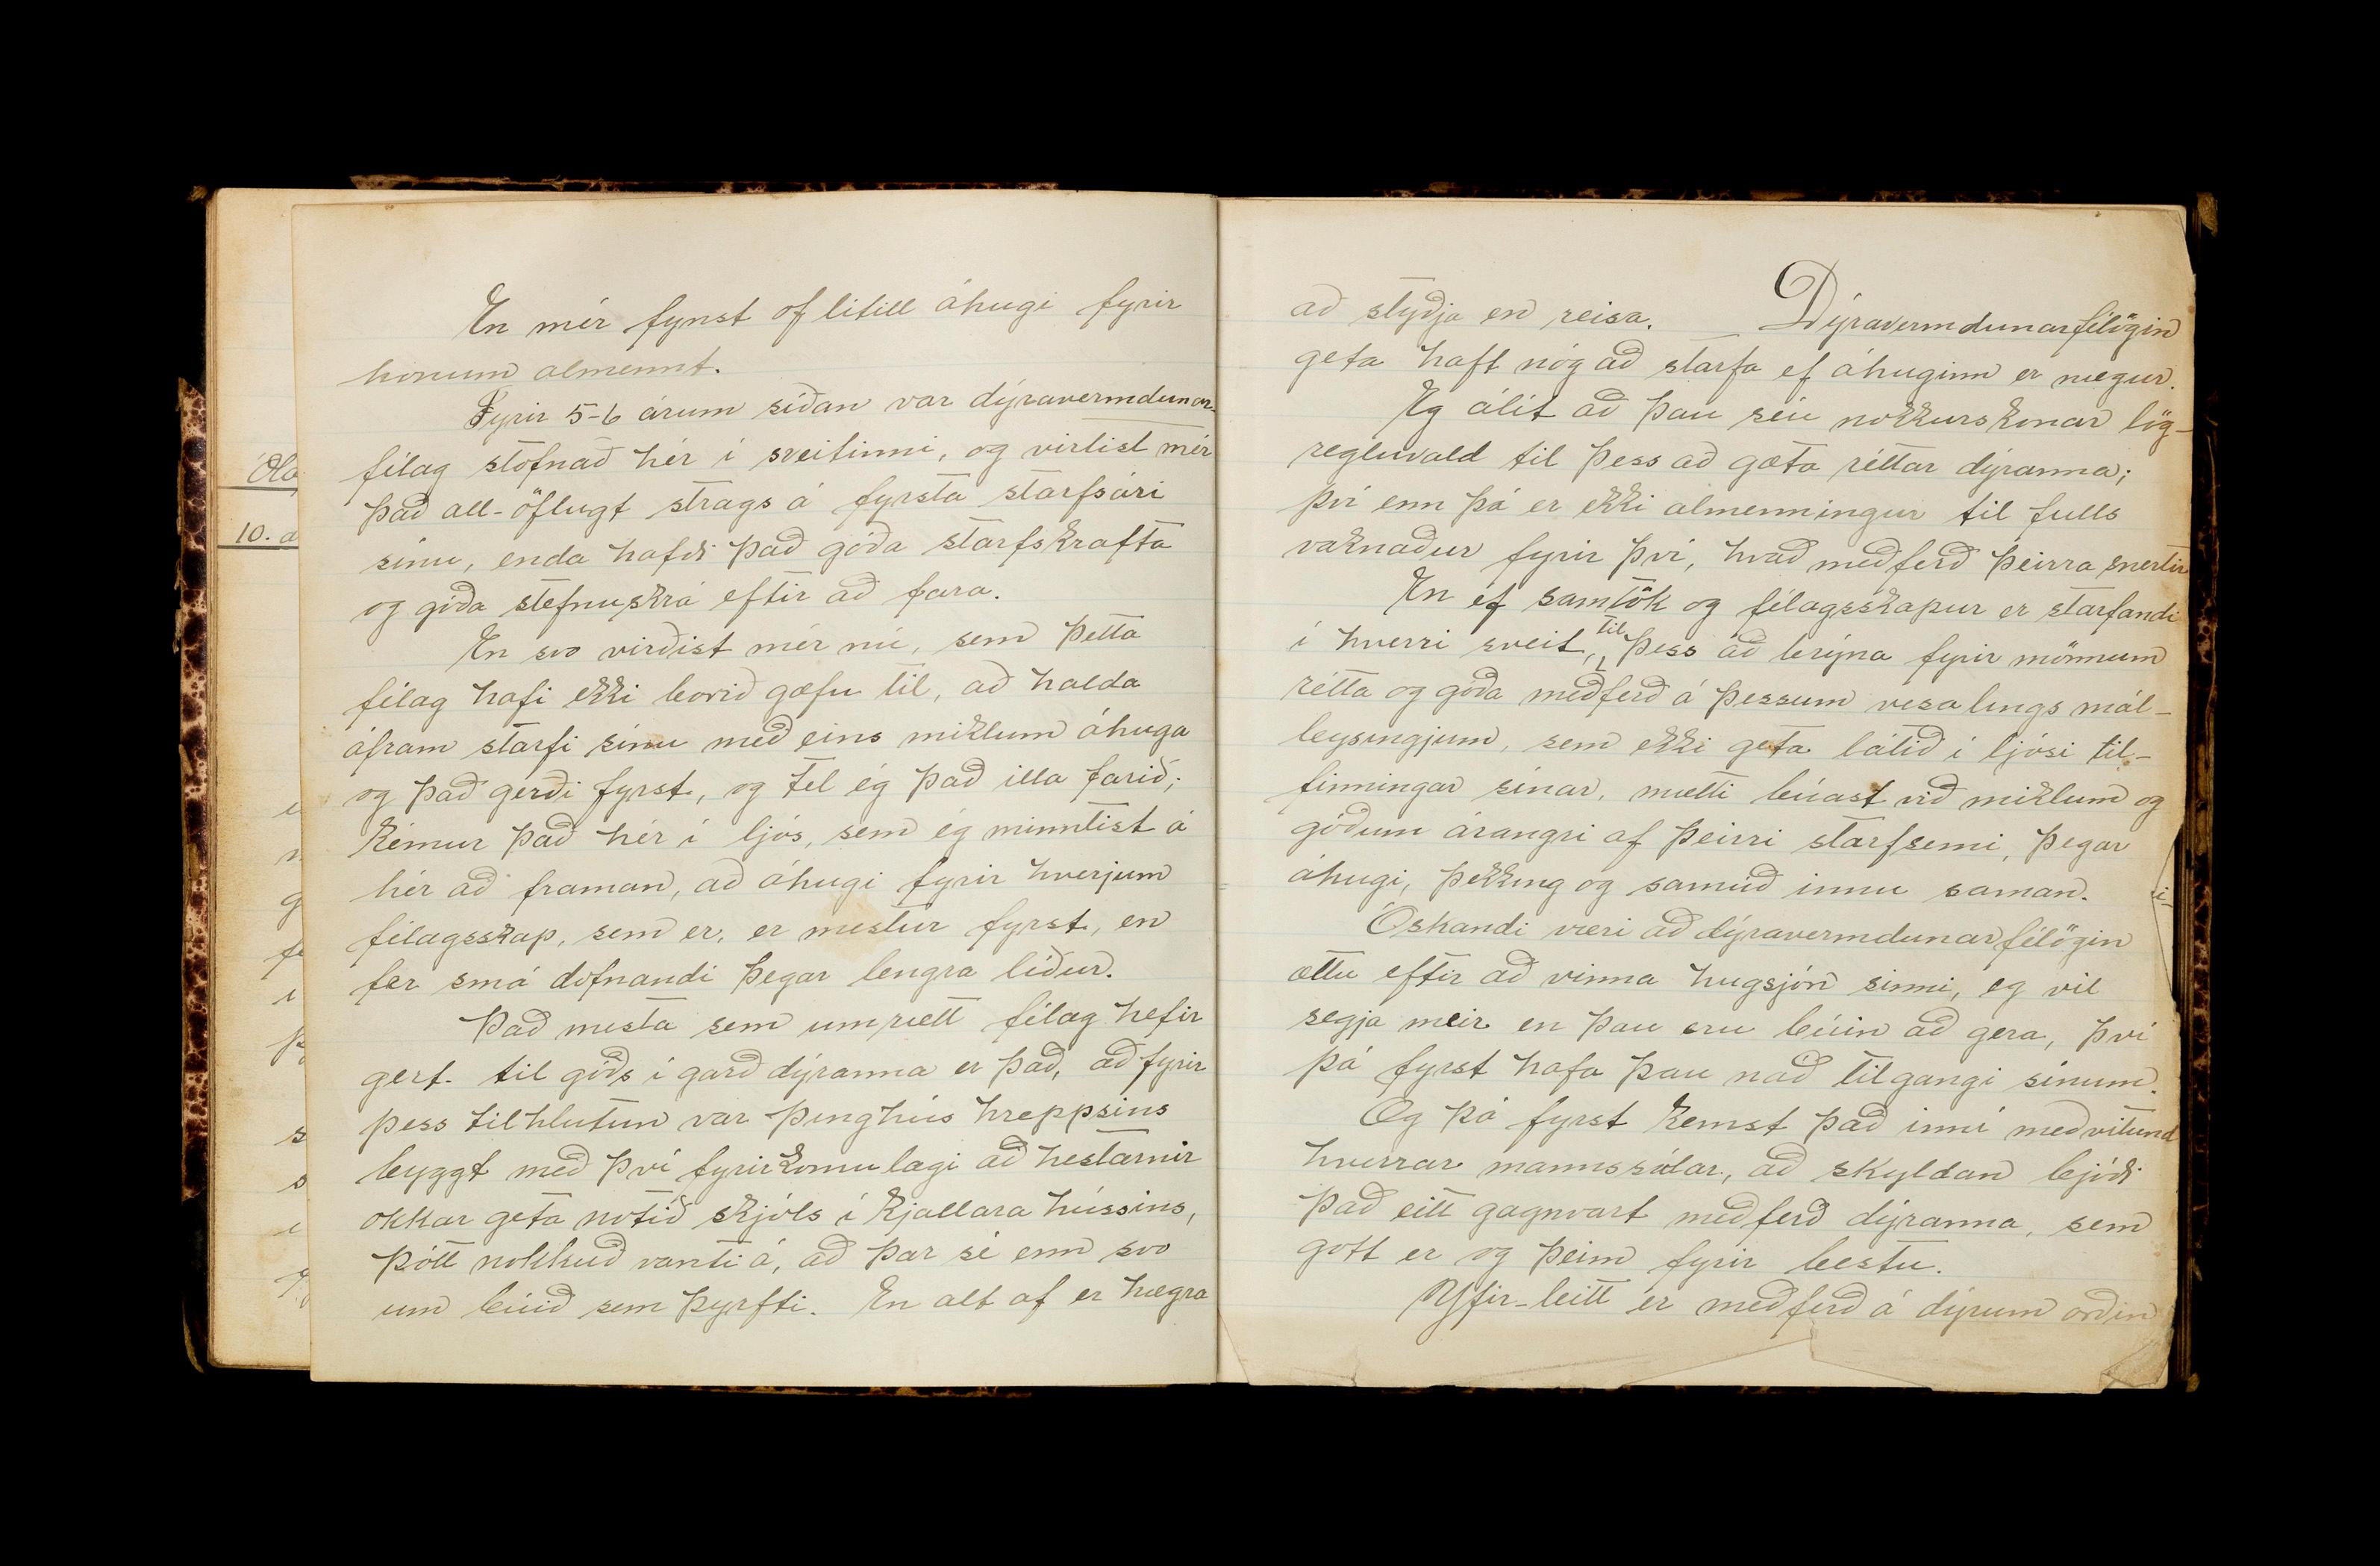 En mér fynst of lítill áhugi fyrir
honum almennt.
Fyrir 5-6 árum síðan var dýraverndunar-
félag stofnað hér í sveitinni, og virtist mér
það all-öflugt strags á fyrsta starfsári
sínu, enda hafði það góða starfskrafta
og góða stefnuskrá eftir að fara.
En svo virðist mér nú, sem þetta
félag hafi ekki borið gæfu til, að halda
áfram starfi sínu með eins miklum áhuga
og það gerði fyrst, og tel ég það illa farið;
kémur það hér í ljós, sem ég minntist á
hér að framan, að áhugi fyrir hverjum
félagsskap, sem er, er mestur fyrst, en
fer smá dofnandi þegar lengra líður.
Það mesta sem umrætt félag hefir
gert til góðs í garð dýranna er það, að fyrir
þess tilhlutun var þinghús hreppsins
byggt með því fyrirkomulagi að hestarnir
okkar geta notið skjóls í kjallara hússins,
þótt nokkuð vanti á, að þar sé enn svo
um búið sem þyrfti. En alt af er hægra
að styðja en reisa. Dýraverndunarfélögin
geta haft nóg að starfa ef áhuginn er nægur.
Eg álít að þau séu nokkurskonar lög-
regluvald til þess að gæta réttar dýranna;
því enn þá er ekki almenningur til fulls
vaknaður fyrir því, hvað meðferð þeirra snertir
En ef samtök og félagsskapur er starfandi
í hverri sveit, til þess að brýna fyrir mönnum
rétta og góða meðferð á þessum vesalings mál-
leysingjum, sem ekki geta látið í ljósi til-
finningar sínar, mætti búast við miklum og
góðum árangri af þeirri starfsemi, þegar
áhugi, þekking og samúð innu saman.
Óskandi væri að dýraverndunarfélögin
ættu eftir að vinna hugsjón sinni, eg vil
segja meir en þau eru búin að gera, því
þá fyrst hafa þau náð tilgangi sínum.
Og þá fyrst kemst það inní meðvitund
hverrar mannssálar, að skyldan bjóði
það eitt gagnvart meðferð dýranna, sem
gott er og þeim fyrir bestu.
Yfir-leitt er meðferð á dýrum orðin